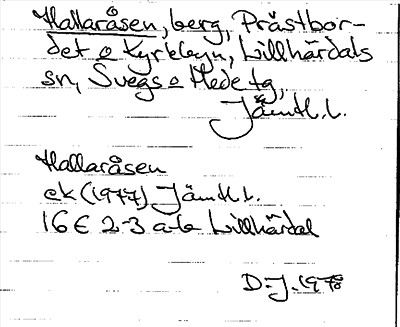 Hallaråsen, berg, Prästbor-
det o Kyrkbyn, Lillhärdals
sn, Svegs o Hede tg,
Jämtl. l.
Hallaråsen
ek (1977) Jämtl. l.
16E 2-3 a-b Lillhärdal
D.J. 1978